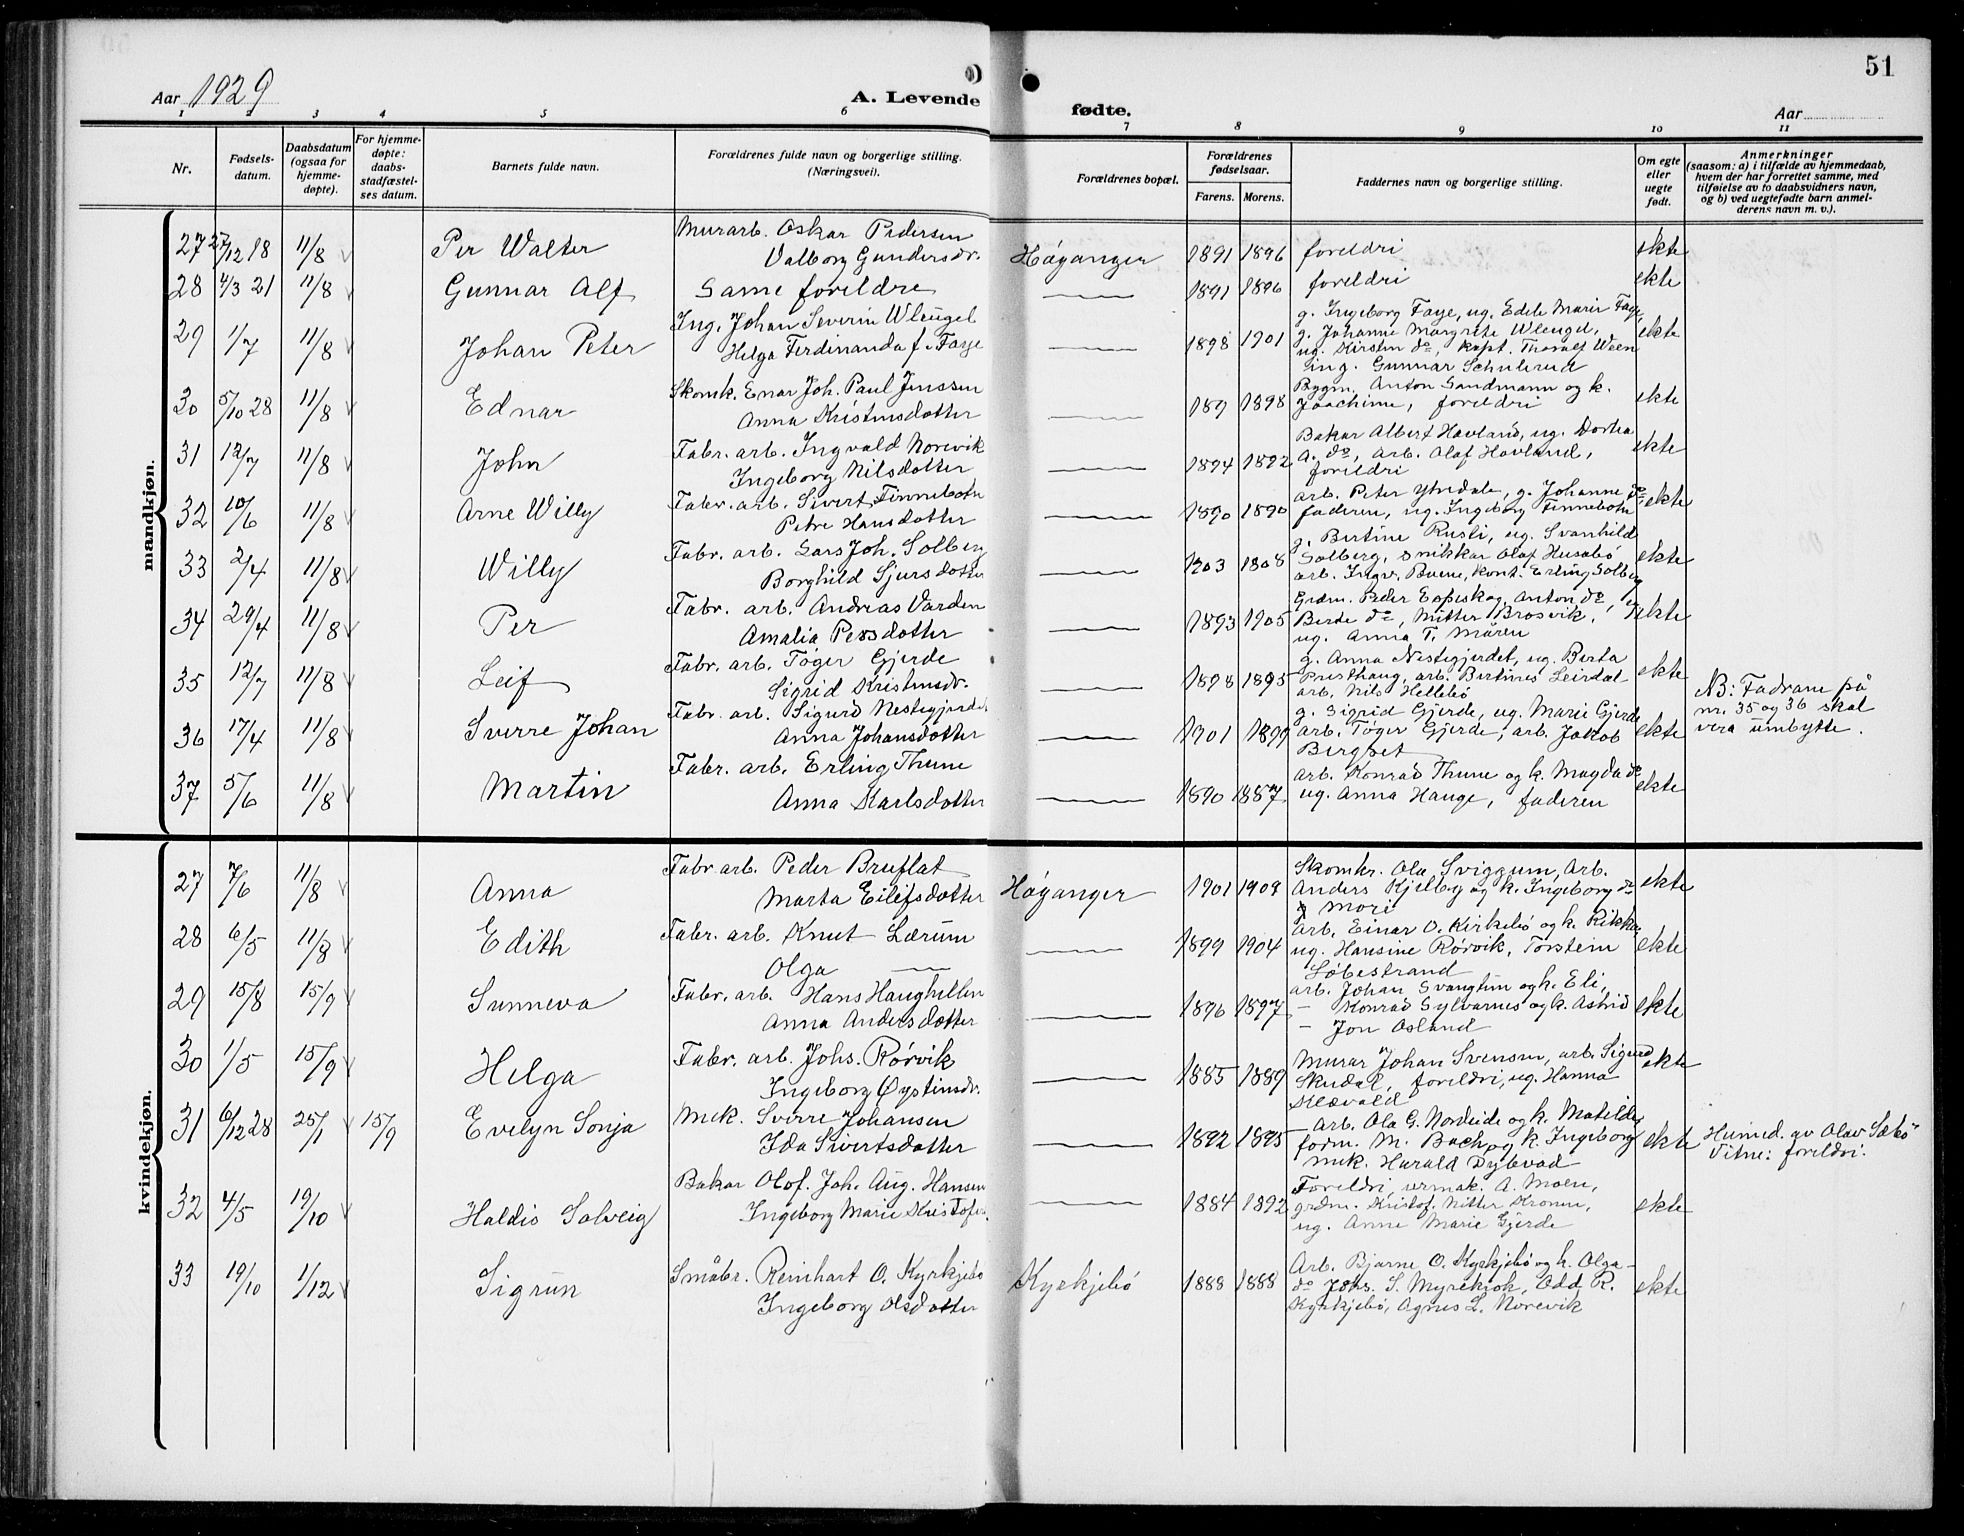 51
Aar 1929
A. Levende fødte.
Aar
1 2 3 4 5 6 7 8 9 10 11
Nr.
Fødsels-
datum.
Daabsdatum
(ogsaa for
hjemme-
døpte).
For hjemme-
døpte:
daabs-
stadfæstel-
ses datum.
Barnets fulde navn.
Forældrenes fulde navn og borgerlige stilling.
(Næringsvei).
Forældrenes bopæl.
Forældrenes
fødselsaar.
Farens. Morens.
Faddernes navn og borgerlige stilling.
Om egte
eller
uegte
født.
Anmerkninger
(saasom: a) i tilfælde av hjemmedaab,
hvem der har forrettet samme, med
tilføielse av to daabsvidners navn,
og b) ved uegtefødte barn anmel-
derens navn m. v.).
mandkjøn.
27 27/12 18 11/8 Per Walter Murarb. Oskar Pedersen
Valborg Gundersdr. Høyanger 1891 1896 foreldri ekte
28 4/3 21 11/8 Gunnar Alf Same foreldre 1891 1896 foreldri ekte
29 1/7 11/8 Johan Peter Ing. Johan Severin Wleugel
Helga Ferdinanda f. Faye 1898 1901 g. Ingeborg Faye, ug. Edele Marie Faye,
g. Johanne Margrete Wleugel,
ug. Kirsten do, kapt. Thoralf Ween
ing. Gunnar Schulerud ekte
30 5/10 28 11/8 Ednar Skomk. Enar Joh. Paul Jenssen
Anna Kristensdotter 189 1898 Bygm. Anton Sandmann og k.
Joachime, foreldri ekte
31 12/7 11/8 John Fabr. arb. Ingvald Norevik
Ingeborg Nilsdotter 1894 1892 Bakar Albert Hovland, ug. Dortea
A. do, Arb. Olaf Hovland,
foreldri ekte
32 10/6 11/8 Arne Willy Fabr. arb. Sivert Finnebotn
Petre Hansdotter 1890 1890 arb. Peter Ytredale, g. Johanne do
faderen, ug. Ingeborg Finnebotn ekte
33 2/4 11/8 Willy Fabr. arb. Lars Joh. Solberg
Borghild Sjursdotter 1903 1808 g. Bertine Rusti, ug. Svanhild
Solberg, snikkar Olaf Husabø
arb. Ingv. Buene, kont. Erling Solberg ekte
34 29/4 11/8 Per Fabr. arb. Andreas Varden
Amalia Persdotter 1893 1905 Grdm. Peder Espeskog, Anton do, ug.
Berte do, Mitter Brosvik,
ug. Anna T. Møren ekte
35 12/7 11/8 Leif Fabr. arb. Tøger Gjerde
Sigrid Kristensdr. 1898 1895 g. Anna Nestegjerdet, ug. Berta
Presthaug, arb. Bertines Leirdal
arb. Nils Hellebø ekte
NB: Fadrane på
nr. 35 og 36 skal
vera umbytte.
36 17/4 11/8 Sverre Johan Fabr. arb. Sigurd Nestegjerdet
Anna Johansdotter 1901 1899 g. Sigrid Gjerde, ug. Marie Gjerde
arb. Tøger Gjerde, arb. Jakob ekte
37 5/6 11/8 Martin Fabr. arb. Erling Thune
Anna Karlsdotter 1890 1887 arb. Konrad Thune og k. Magda do
ug. Anna Hauge, faderen ekte
kvindekjøn.
27 7/6 11/8 Anna Fabr arb. Peder Bruflat
Marta Eilefsdotter Høyanger 1901 1909 Skomkr. Ola Sviggum, Arb.
Anders Kjelby og k. Ingeborg do
mori ekte
28 6/5 11/8 Edith Fabr. arb. Knut Lærum
Olga 1899 1904 arb. Einar O. Kirkebø og k. Rikka
ug. Hansine Rørvik, Torstein
Løbestrand ekte
29 15/8 15/9 Sunneva Fabr. arb. Hans Haughellen
Anna Andersdotter 1896 1897 arb. Johan Svangtun og k. Eli,
– Konrad Sylvarnes og k. Astrid
– Jon Osland ekte
30 1/5 15/9 Helga Fabr. arb. Johs. Rørvik
Ingeborg Øysteinsdr. 1885 1889 Murar Johan Svensen, arb. Sigurd
Skudal, foreldri, ug. Hanna
Klævold ekte
31 6/12 28 25/1 15/9 Evelyn Sonja Mek. Sverre Johansen
Ida Sivertsdotter 1892 1895 – Arb. Ola G. Nordeide og k. Matilde
form. M. Bach og k. Ingeborg
mek. Harald Dybevad ekte Heimed. av Olav Sæbø
Vitne: foreldri.
32 4/5 19/10 Haldis Solveig Bakar Olof. Joh. Aug. Hansen
Ingeborg Marie Kristofer. 1884 1892 Foreldri, urmak. A. Moen,
grdm. Kristof. Nitter Kronen,
ug. Anne Marie Gjerde ekte
33 19/10 1/12 Sigrun Småbr. Reinhart O. Kyrkjebø
Ingeborg Olsdotter Kyrkjebø 1888 1888 Arb. Bjarne O. Kyrkjebø og k. Olga –
do Johs. S. Myrekrok, Odd R.
Kyrkjebø, Agnes L. Norevik ekte